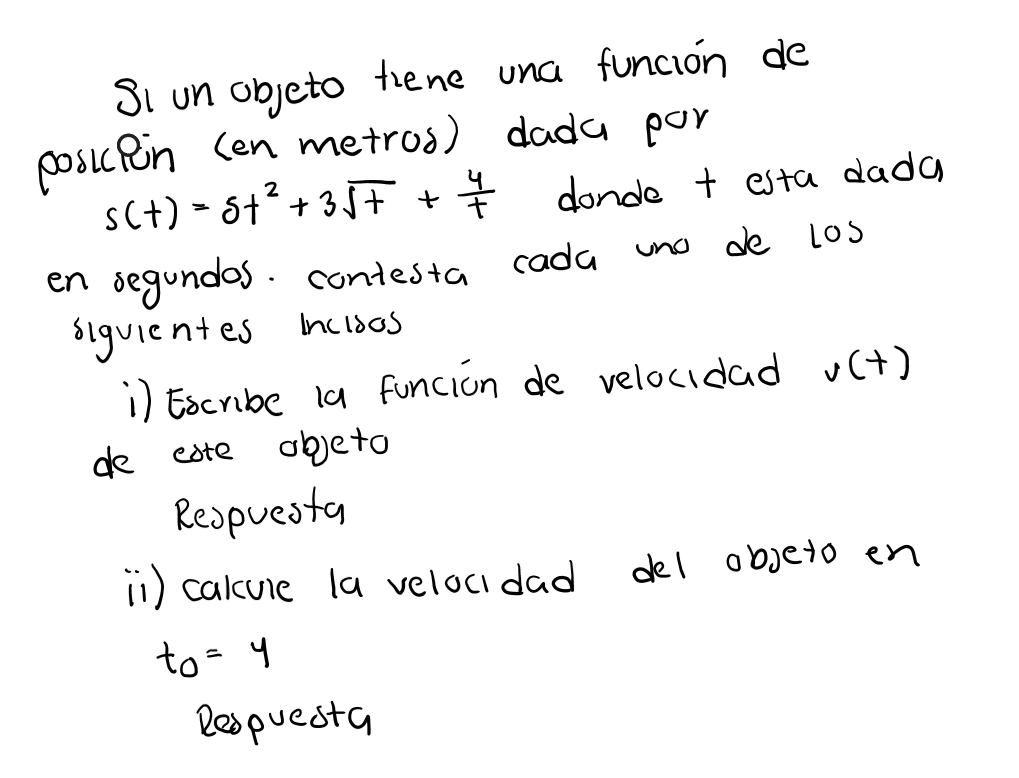 Si un objeto tiene una función de
posición (en metros) dada por
s(t) = 8t² + 3√t + 4/t donde t esta dada
en segundos. contesta cada uno de los
siguientes incisos
i) Escribe la función de velocidad v(t)
de este objeto
Respuesta
ii) calcule la velocidad del objeto en
t₀ = 4
Respuesta